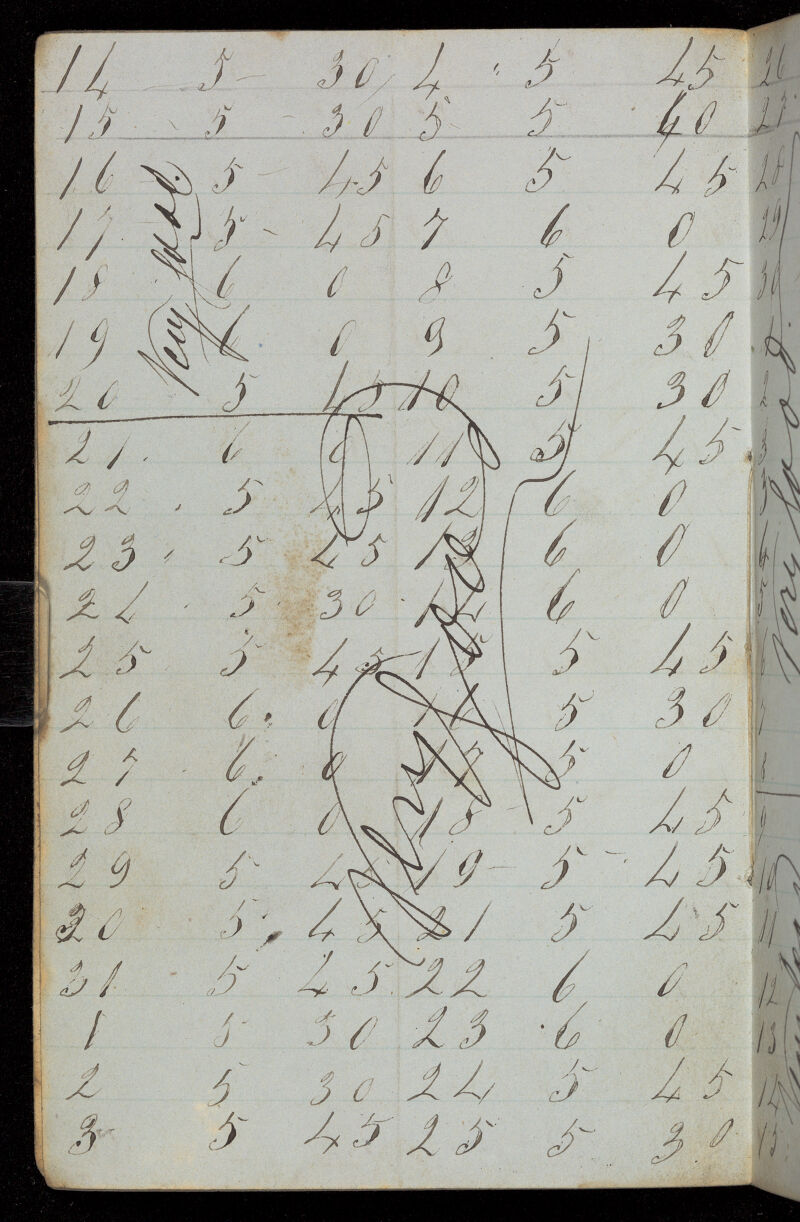 14 - 5 - 30 4 " 5 45
15 - 5 - 30 5 5 40
16 5 - 45 6 5 45
17 5 - 45 7 6 0
18 6 0 8 5 45
19 6 0 9 5 30
20 5 45 10 5 30
Very good.
21. 6 0 11 5 45
22 . 5 45 12 6 0
23 " 5 45 13 6 0
24 . 5 30 14 6 0
25 . 5 45 15 5 45
26 6. 0 16 5 30
27 6. 0 17 5 0
28 6 0 18 - 5 45
29 5 45 19 - 5 - 45
30 5 45 21 5 45
31 5 45 22 6 0
1 5 30 23 6 0
2 5 30 24 5 45
3 5 45 25 5 30
Very Good
26
27
28
29
30
2
3
3
4
5
6
7
8
Very Good.
9
10
11
12
13
14
15